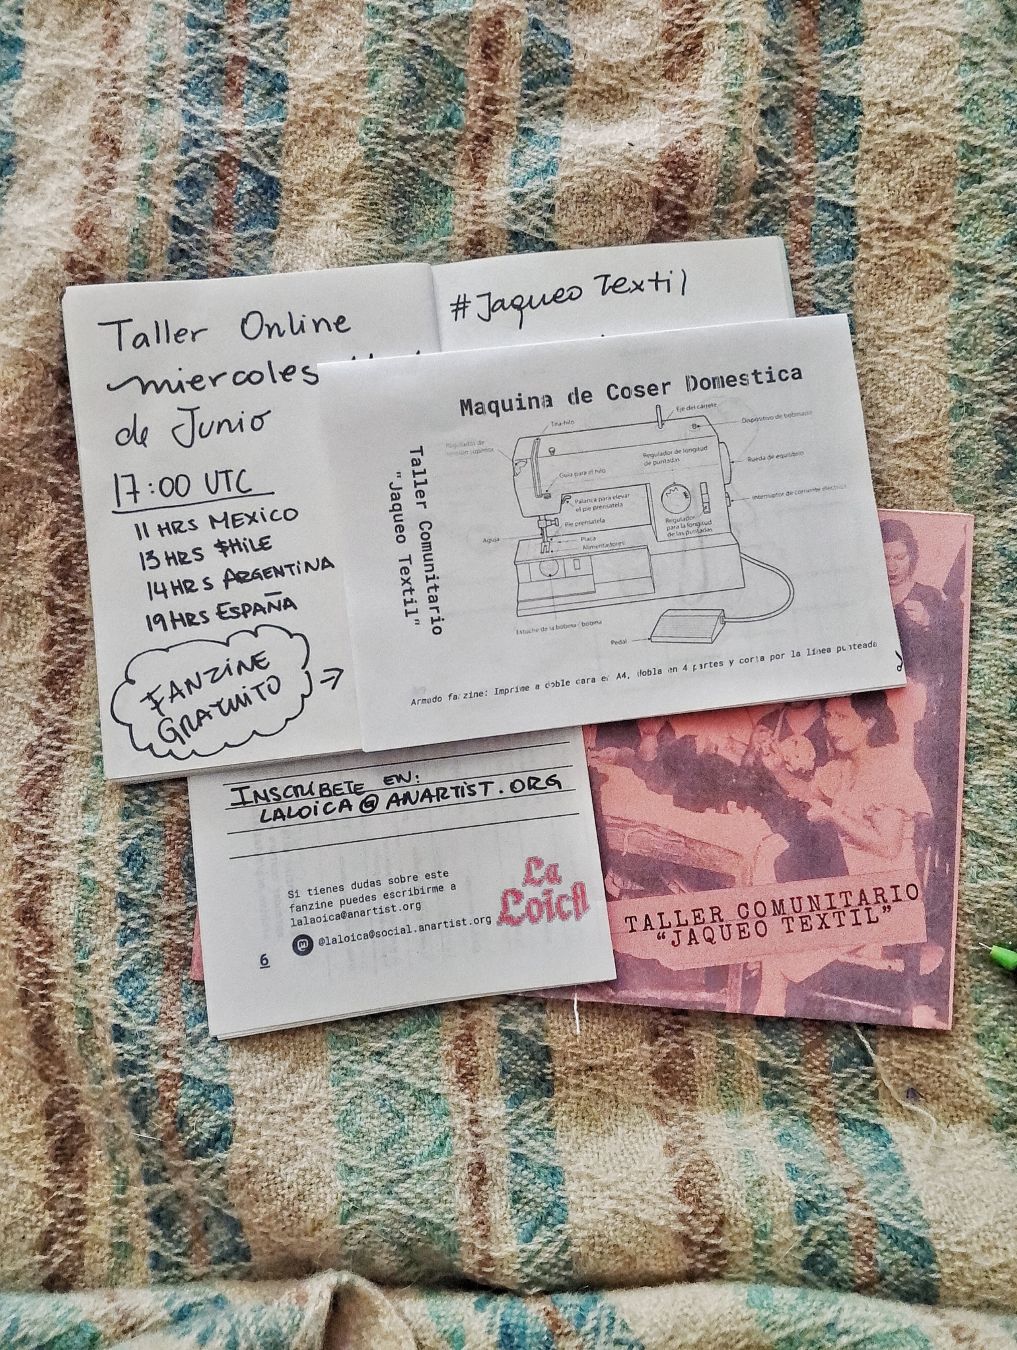 Taller Online
miercoles
de Junio
17:00 UTC
11 HRS MEXICO
13 HRS CHILE
14 HRS ARGENTINA
19 HRS ESPAÑA
FANZINE
GRATUITO
#Jaqueo Textil
Maquina de Coser Domestica
Taller Comunitario
"Jaqueo Textil"
Tira-hilo
Eje del carrete
Dispositivo de bobinado
Regulador de
tensión superior
Guía para el hilo
Regulador de longitud
de puntadas
Rueda de equilibrio
Palanca para elevar
el pie prensatela
Interruptor de corriente eléctrica
Pie prensatela
Regulador
para la longitud
de las puntadas
Aguja
Placa
Alimentadores
Estuche de la bobina / bobina
Pedal
Armado fanzine: Imprime a doble cara en A4, dobla en 4 partes y corta por la línea punteada
INSCRÍBETE EN:
LALOICA@ANARTIST.ORG
Si tienes dudas sobre este
fanzine puedes escribirme a
lalaoica@anartist.org
@laloica@social.anartist.org
6
La
Loica
TALLER COMUNITARIO
"JAQUEO TEXTIL"